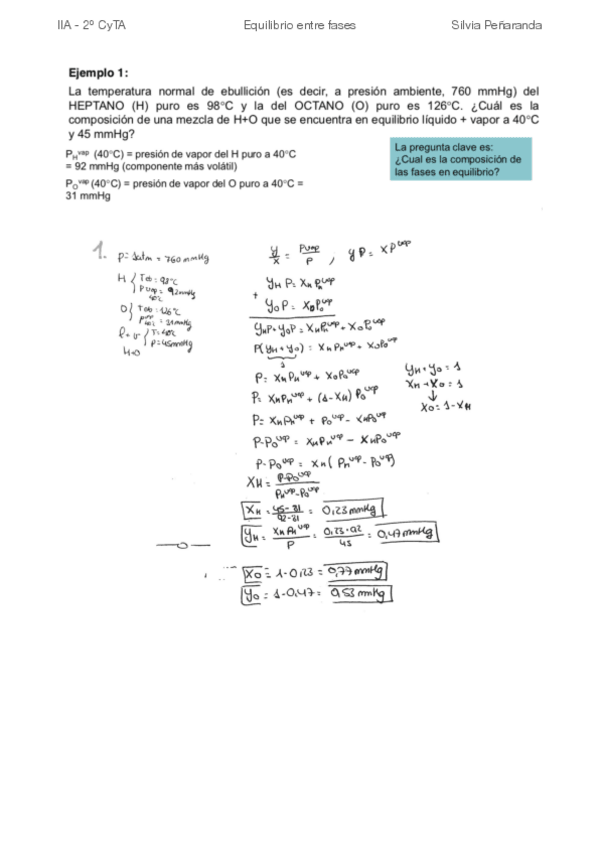 IIA - 2º CyTA Equilibrio entre fases Silvia Peñaranda
Ejemplo 1:
La temperatura normal de ebullición (es decir, a presión ambiente, 760 mmHg) del
HEPTANO (H) puro es 98°C y la del OCTANO (O) puro es 126°C. ¿Cuál es la
composición de una mezcla de H+O que se encuentra en equilibrio líquido + vapor a 40°C
y 45 mmHg?
P_H^vap (40°C) = presión de vapor del H puro a 40°C
= 92 mmHg (componente más volátil)
P_O^vap (40°C) = presión de vapor del O puro a 40°C =
31 mmHg
La pregunta clave es:
¿Cual es la composición de
las fases en equilibrio?
1. P= 1atm = 760 mmHg
H { Teb: 98°C
Pvap 40°C = 92 mmHg
O { Teb: 126°C
Pvap 40°C = 31 mmHg
l + v { T= 40°C
H+O P= 45 mmHg
y/x = Pvap/P , y P = x P^vap
y_H P = x_H P_H^vap
+
y_O P = x_O P_O^vap
y_H P + y_O P = x_H P_H^vap + x_O P_O^vap
P(y_H + y_O) = x_H P_H^vap + x_O P_O^vap
1
P = x_H P_H^vap + x_O P_O^vap
P = x_H P_H^vap + (1-x_H) P_O^vap
P = x_H P_H^vap + P_O^vap - x_H P_O^vap
P-P_O^vap = x_H P_H^vap - x_H P_O^vap
P-P_O^vap = x_H ( P_H^vap - P_O^vap)
y_H + y_O = 1
x_H + x_O = 1
↓
x_O = 1-x_H
x_H = P-P_O^vap / P_H^vap-P_O^vap
x_H = 45-31 / 92-31 = 0,23 mmHg
y_H = x_H P_H^vap / P = 0,23·92 / 45 = 0,47 mmHg
x_O = 1-0,23 = 0,77 mmHg
y_O = 1-0,47 = 0,53 mmHg